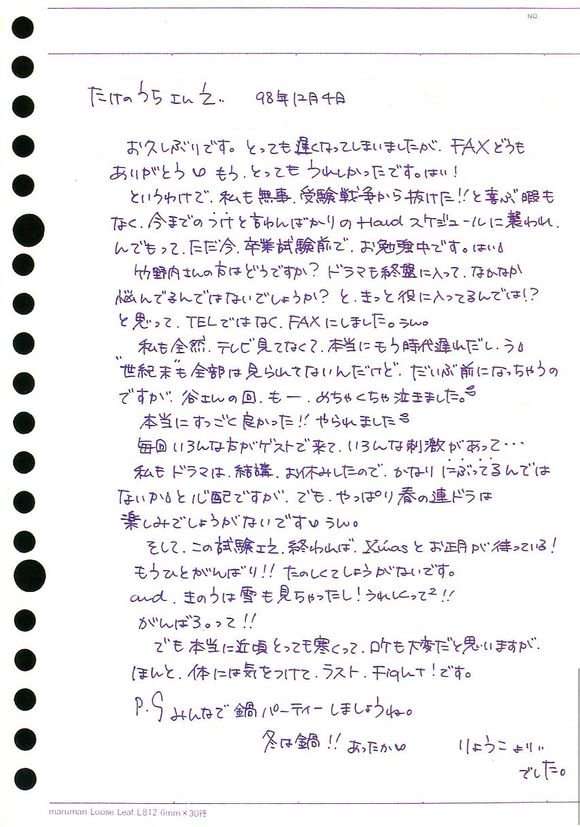 NO.
たけのうちさんえ 98年12月4日
お久しぶりです。とっても遅くなってしまいましたが、FAXどうも
ありがとう もう、とってもうれしかったです。はい!
というわけで、私も無事、受験戦争から抜けた!!と喜ぶ暇も
なく、今までのうけと言わんばかりのHardスケジュールに襲われ、
んでもって、ただ今、卒業試験前で、お勉強中です。はい
竹野内さんの方はどうですか?ドラマも終盤に入って、なかなか
悩んでるんではないでしょうか?と、きっと役に入ってるんでは!?
と思って、TELではなく、FAXにしました。うん。
私も全然、テレビ見てなくて、本当にもう時代遅れだし、う
"世紀末"も全部は見られてないんだけど、だいぶ前になっちゃうの
ですが、谷さんの回、もー、めちゃくちゃ泣きました。
本当にすっごく良かった!!やられました
毎回いろんな方がゲストで来て、いろんな刺激があって…
私もドラマは、結構、お休みしたので、かなりにぶってるんでは
ないかと心配ですが、でも、やっぱり春の連ドラは
楽しみでしょうがないです うん。
そして、この試験さえ、終われば、Xmasとお正月が待っている!
もうひとがんばり!!たのしくてしょうがないです。
and、きのうは雪も見ちゃったし!うれしくって²!!
がんばろ。って!!
でも本当に近頃とっても寒くって、ロケも大変だと思いますが、
ほんと、体には気をつけて、ラスト、Fight!です。
P.S みんなで鍋パーティーしましょうね。
冬は鍋!!あったかい
りょうこより
でした。
maruman Loose Leaf L812 6mm×30行